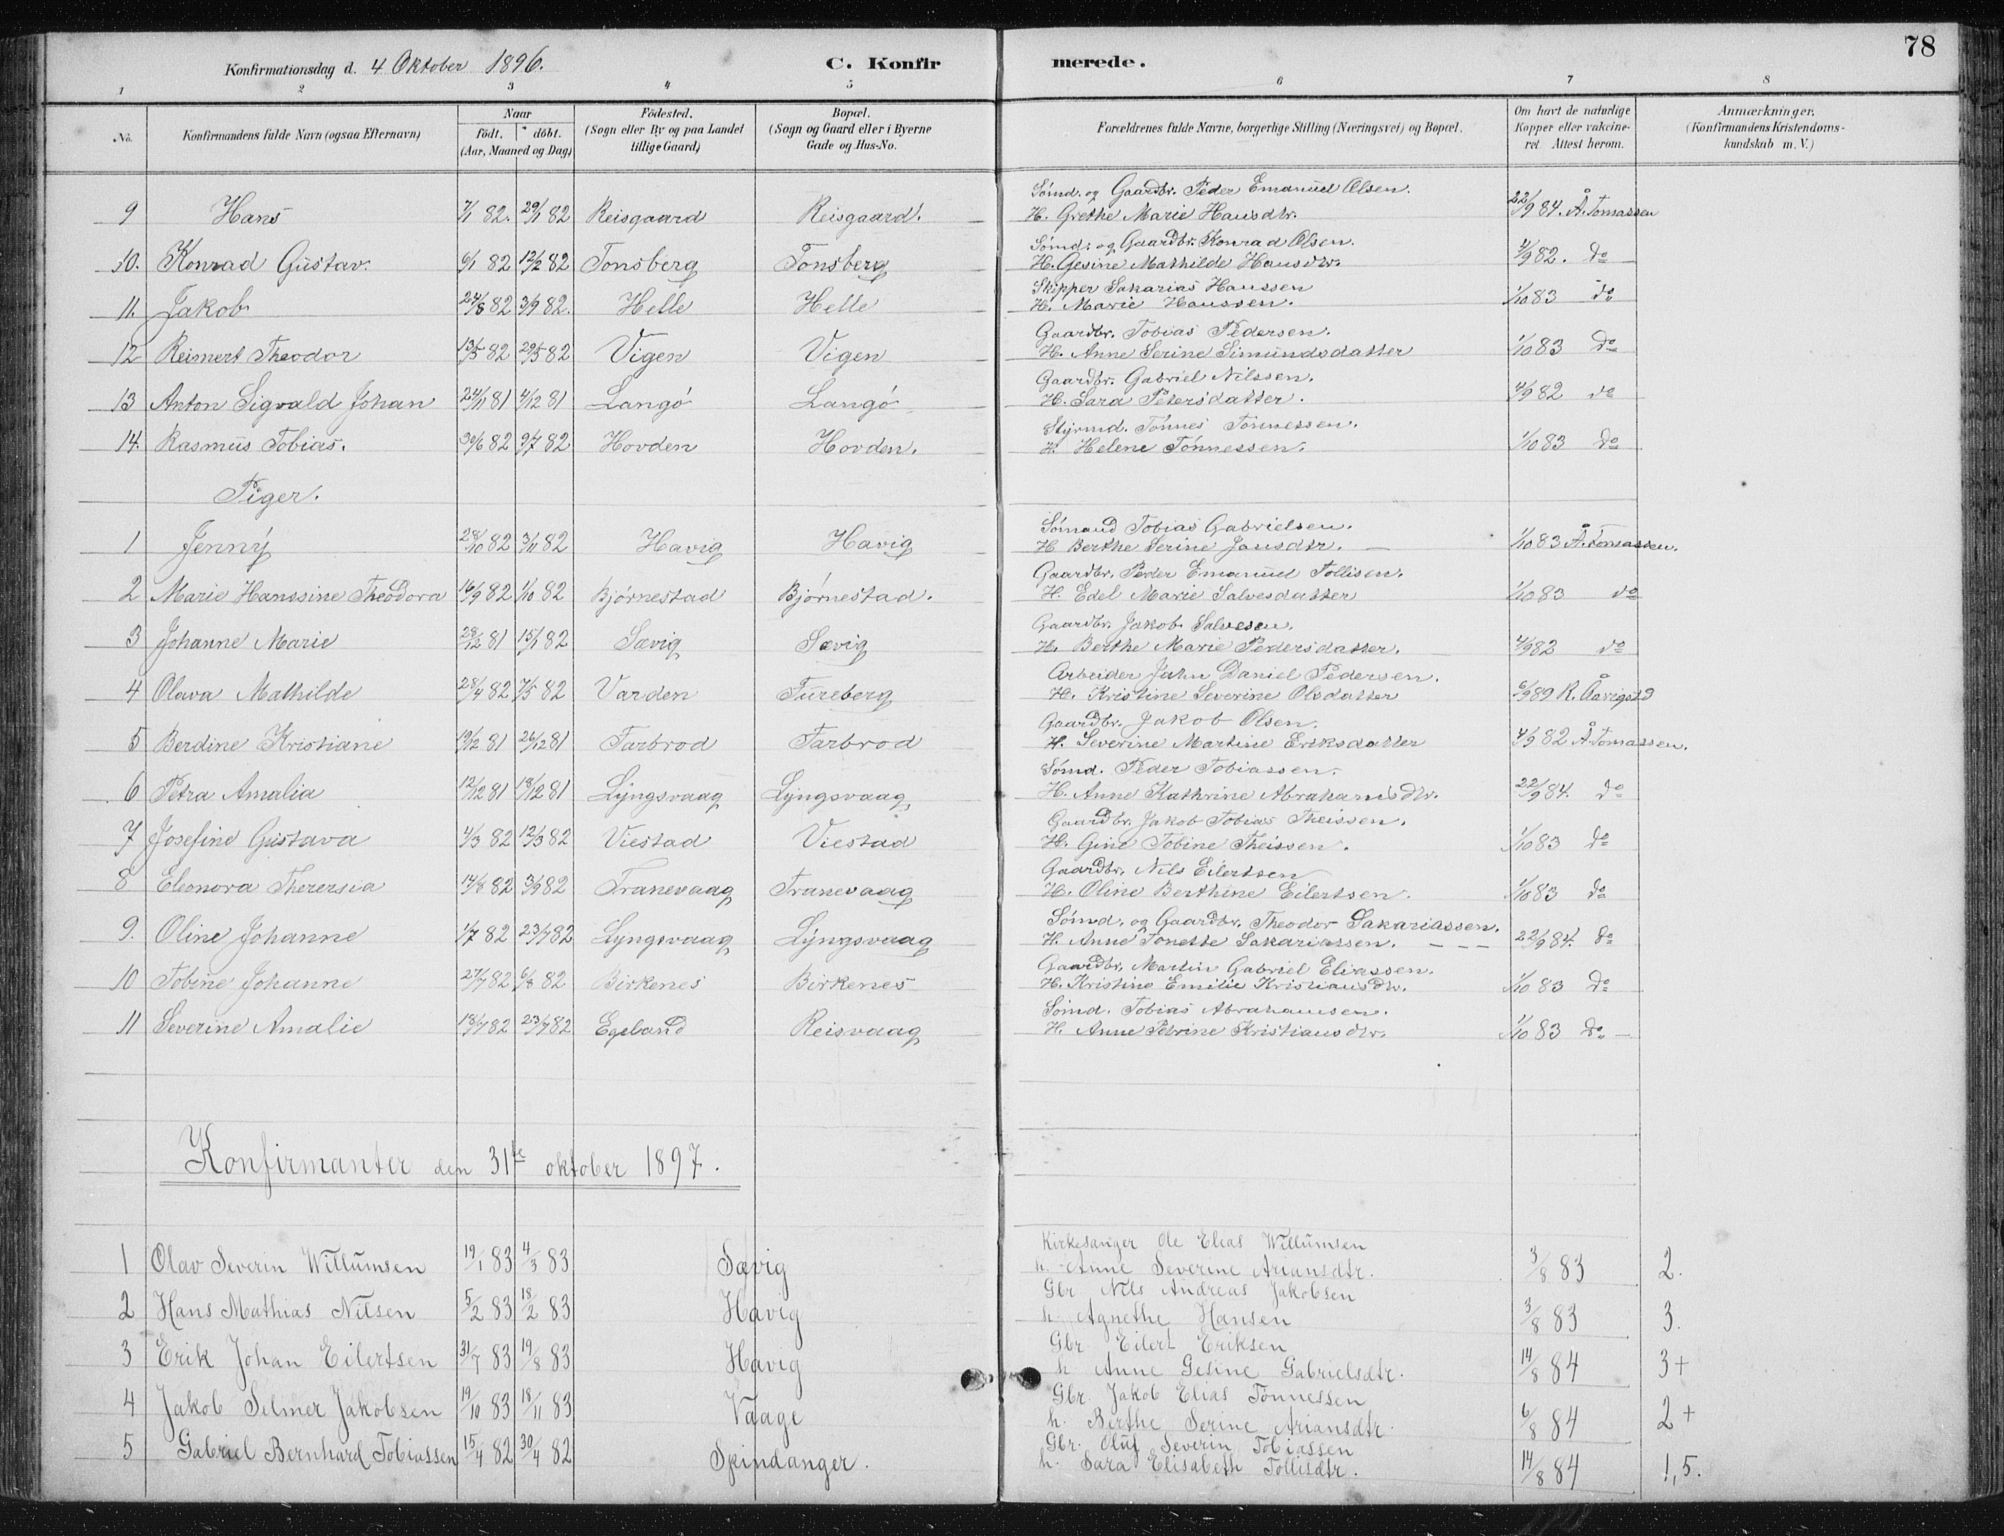 78
Konfirmationsdag d. 4 Oktober 1896. C. Konfirmerede.
1 2 3 4 5 6 7 8
No. Konfirmandens fulde Navn (ogsaa Efternavn) Naar födt. döbt. (Aar, Maaned og Dag) Födested. (Sogn eller By og paa Landet tillige Gaard) Bopæl. (Sogn og Gaard eller i Byerne Gade og Hus-No. Forældrenes fulde Navne, borgerlige Stilling (Næringsvei) og Bopæl. Om havt de naturlige Kopper eller vakcineret. Attest herom. Anmærkninger. (Konfirmandens Kristendomskundskab m. V.)
Sømd. og Gaardbr. Peder Emanuel Olsen.
9 Hans 7/1 82. 29/1 82 Reisgaard Reisgaard. H. Grethe Marie Hansdtr. 22/9 84. Å. Tomassen
Sømd. og Gaardbr. Konrad Olsen.
10. Konrad Gustav. 6/1 82 12/2 82 Tonsberg Tonsberg H. Gesine Mathilde Hansdtr. 4/9 82. do
Skipper Sakarias Hanssen
11. Jakob 24/8 82 3/9 82. Helle Helle H. Marie Hanssen. 1/10 83 do
Gaardbr. Tobias Pedersen.
12 Reimert Theodor 13/5 82 29/5 82 Vigen Vigen H. Anne Serine Simundsdatter 1/10 83 do
Gaardbr. Gabriel Nilssen.
13 Anton Sigvald Johan 24/11 81 4/12 81 Langö Langö H. Sara Petersdatter. 4/9 82 do
Styrmd. Tönnes Tönnessen.
14. Rasmus Tobias. 30/6 82 9/7 82 Hovden Hovden. H. Helene Tönnessen. 1/10 83 do
Piger.
Sömand Tobias Gabrielsen.
1 Jenny 28/10 82 3/11 82 Havig Havig H Berthe Serine Jansdtr. 1/10 83 Å. Tomassen.
Gaardbr. Peder Emanuel Tollisen.
2 Marie Hanssine Theodora 14/9 82 1/10 82 Bjørnestad Bjørnestad. H. Edel Marie Salvesdatter 1/10 83 do
Gaardbr. Jakob Salvesen.
3 Johanne Marie 28/12 81 15/1 82 Sævig Sævig H. Berthe Marie Pedersdatter. 4/9 82 do
Arbeider Jahn Daniel Pedersen.
4 Olava Mathilde 28/4 82 7/5 82 Varden Tureberg H. Kristine Severine Olsdatter 6/9 89 R.
Gaardbr. Jakob Olsen.
5 Berdine Kristiane 19/12 81 26/12 81 Farbrod Farbrod H. Severine Martine Eriksdatter 4/9 82 Å. Tomassen.
Sømd. Peder Tobiassen.
6 Petra Amalia 12/12 81 18/12 81 Lyngsvaag Lyngsvaag H. Anne Kathrine Abrahamsdtr. 22/9 84. do
Gaardbr. Jakob Tobias Theissen.
7 Josefine Gustava 4/3 82 12/3 82 Viestad Viestad H. Gine Tobine Theissen. 1/10 83 do
Gaardbr. Nils Eilertsen
8 Eleonora Therersia 17/8 82 3/9 82 Tranevaag Tranevaag H. Oline Berthine Eilertsen. 1/10 83 do
Sömd. og Gaardbr. Theodor Sakariassen.
9. Oline Johanne 1/7 82 23/7 82 Lyngsvaag Lyngsvaag H. Anne Tonette Sakariassen. 22/9 84. do
Gaardbr. Martin Gabriel Eliassen.
10 Tobine Johanne 27/7 82 6/8 82 Birkenes Birkenes H. Kristine Emilie Kristiansdtr. 1/10 83 do
Sømd. Tobias Abrahamsen.
11 Severine Amalie 18/7 82 23/7 82 Egeland Reisvaag H. Anne Petrine Kristiansdtr. 1/10 83 do
Konfirmanter den 31te oktober 1897.
Kirkesanger Ole Elias Willumsen
1 Olav Severin Willumsen 19/1 83 4/3 83 Sævig h. Anne Severine Ariansdtr. 3/8 83 2.
Gbr Nils Andreas Jakobsen
2 Hans Mathias Nilsen 5/2 83 18/2 83 Havig h. Agnethe Hansen 3/8 83 3.
Gbr Eilert Eriksen
3 Erik Johan Eilertsen 31/7 83 19/8 83 Havig h Anne Gesine Gabrielsdtr. 14/8 84 3+
Gbr. Jakob Elias Tönnessen
4 Jakob Selmer Jakobsen 19/10 83 18/11 83 Vaage h. Berthe Serine Ariansdtr. 6/8 84 2+
Gbr. Oluf Severin Tobiassen
5 Gabriel Bernhard Tobiassen 15/4 82 30/4 82 Spindanger. h. Sara Elisabeth Tollisdtr. 14/8 84 1,5.